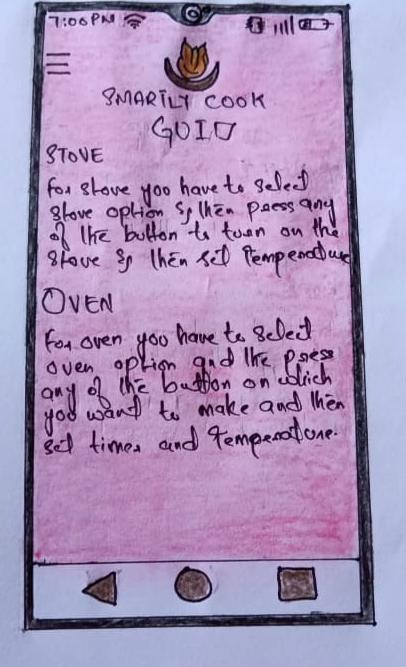 7:00 PM
SMARTLY COOK
GUID
STOVE
For stove you have to select
stove option & then press any
of the button to turn on the
stove & then set temperature
OVEN
For oven you have to select
oven option and the press
any of the button on which
you want to make and then
set times and temperature.